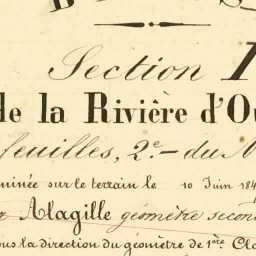 Section
de la Rivière d'O
feuilles, 2e du
minée sur le terrain le 10 Juin 184
Alagille géomètre secon
ous la direction du géomètre de 1ère Cla